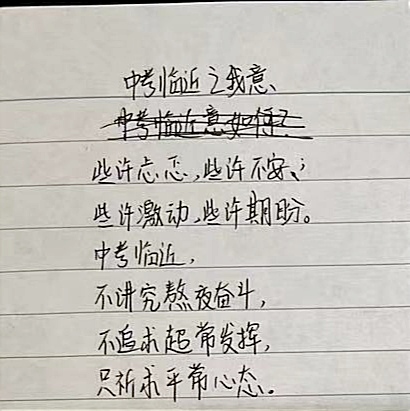 中考临近之我意
中考临近意如何？
些许忐忑，些许不安；
些许激动，些许期盼。
中考临近，
不讲究熬夜奋斗，
不追求超常发挥，
只祈求平常心态。